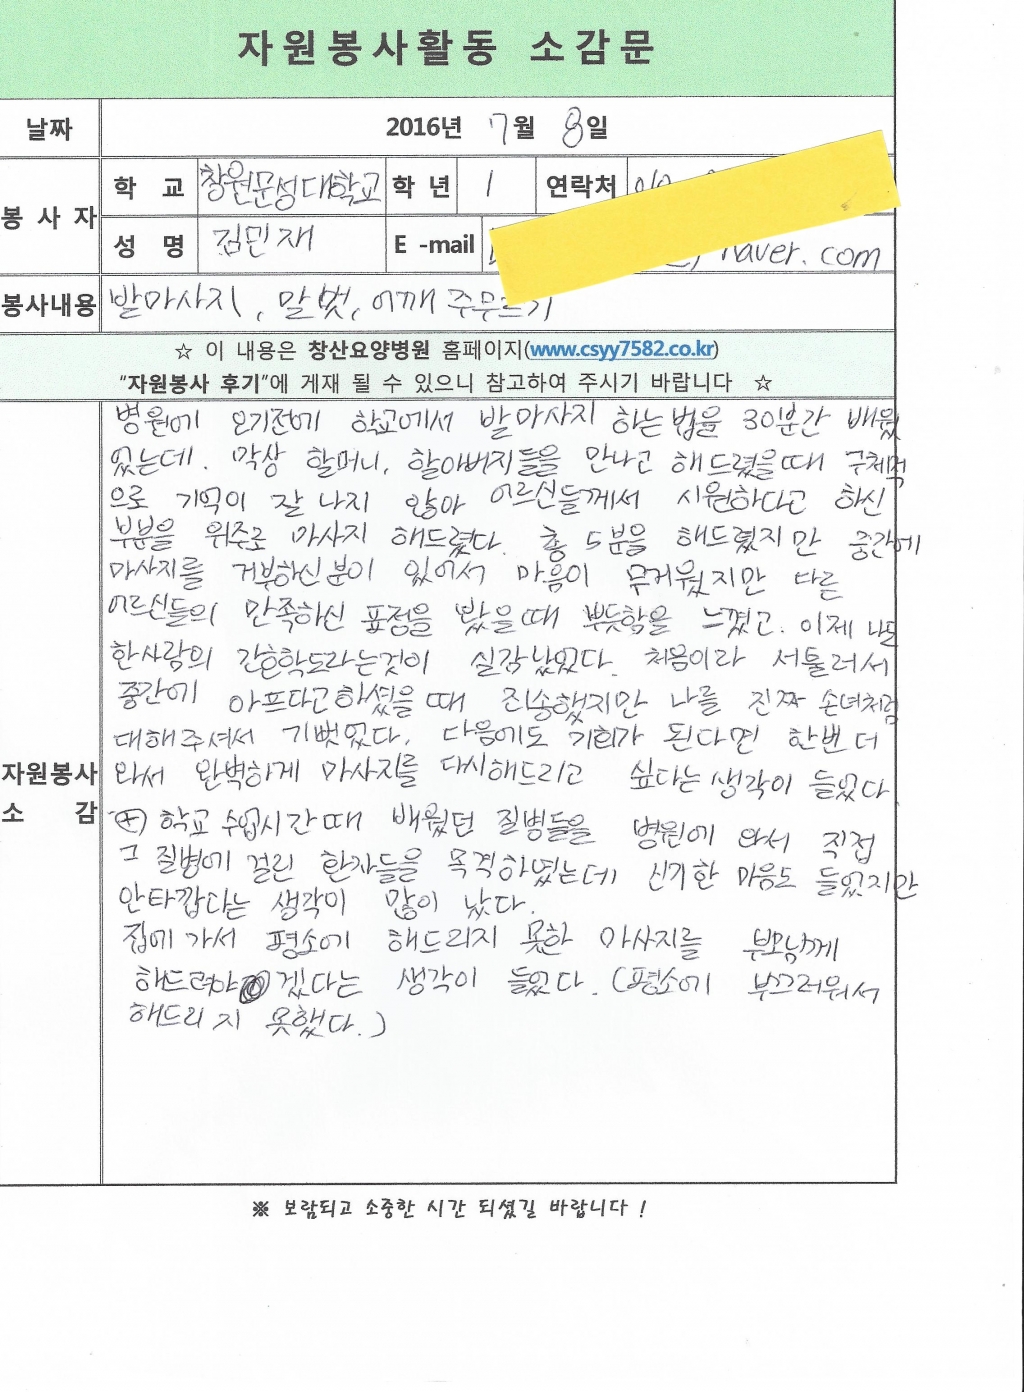 자원봉사활동 소감문
날짜 2016년 7월 8일
봉사자 학교 창원문성대학교 학년 1 연락처
성명 김민재 E -mail naver.com
봉사내용 발마사지, 말벗, 어깨 주무르기
☆ 이 내용은 창산요양병원 홈페이지(www.csyy7582.co.kr)
"자원봉사 후기"에 게재 될 수 있으니 참고하여 주시기 바랍니다 ☆
자원봉사 소감
병원에 오기전에 학교에서 발마사지 하는 법을 30분간 배웠
었는데. 막상 할머니, 할아버지들을 만나고 해드렸을때 구체적
으로 기억이 잘 나지 않아 어르신들께서 시원하다고 하신
부분을 위주로 마사지 해드렸다. 총 5분을 해드렸지만 중간에
마사지를 거부하신분이 있어서 마음이 무거웠지만 다른
어르신들의 만족하신 표정을 봤을때 뿌듯함을 느꼈고. 이제 나도
한사람의 간호학도라는것이 실감났었다. 처음이라 서툴러서
중간에 아프다고하셨을때 죄송했지만 나를 진짜 손녀처럼
대해주셔서 기뻤었다. 다음에도 기회가 된다면 한번 더
와서 완벽하게 마사지를 다시해드리고 싶다는 생각이 들었다
(+) 학교 수업시간때 배웠던 질병들을 병원에 와서 직접
그 질병에 걸린 환자들을 목격하였는데 신기한 마음도 들었지만
안타깝다는 생각이 많이 났다.
집에 가서 평소에 해드리지 못한 마사지를 부모님께
해드려야겠다는 생각이 들었다. (평소에 부끄러워서
해드리지 못했다.)
※ 보람되고 소중한 시간 되셨길 바랍니다 !